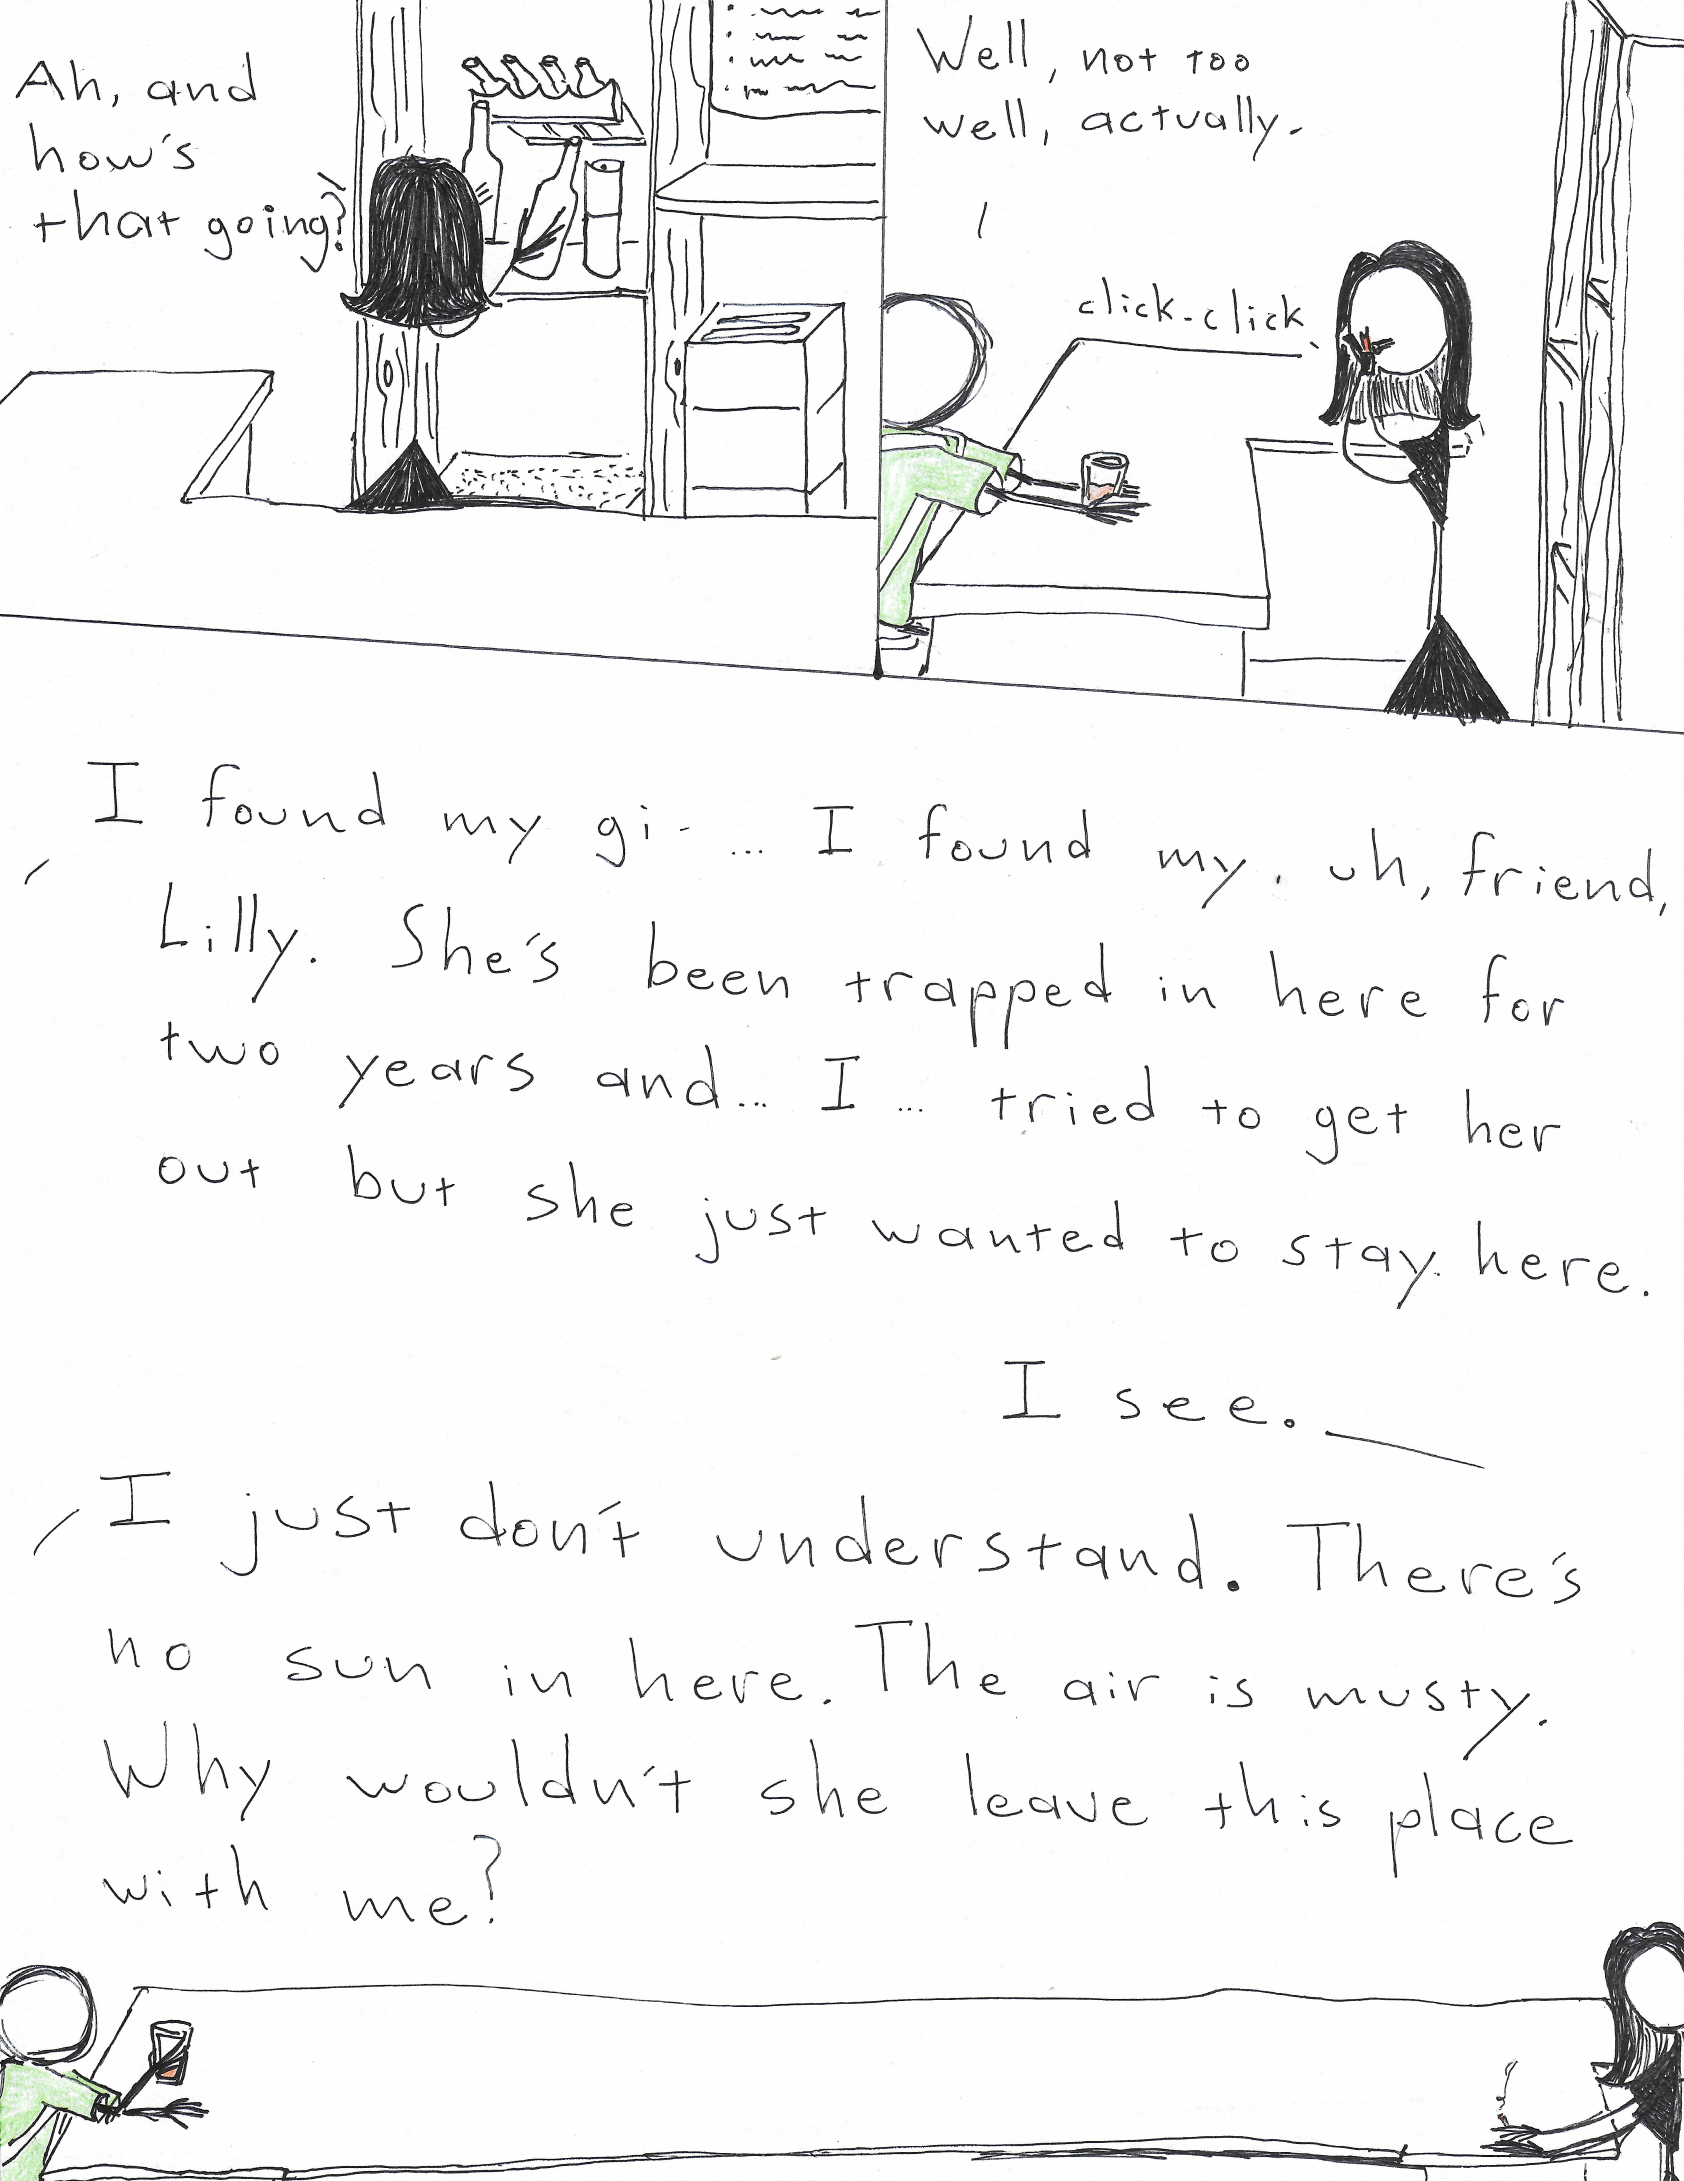 Ah, and
how's
that going?
Well, not too
well, actually.
click-click
I found my gi- ... I found my, uh, friend,
Lilly. She's been trapped in here for
two years and... I ... tried to get her
out but she just wanted to stay here.
I see.
I just don't understand. There's
no sun in here. The air is musty.
Why wouldn't she leave this place
with me?